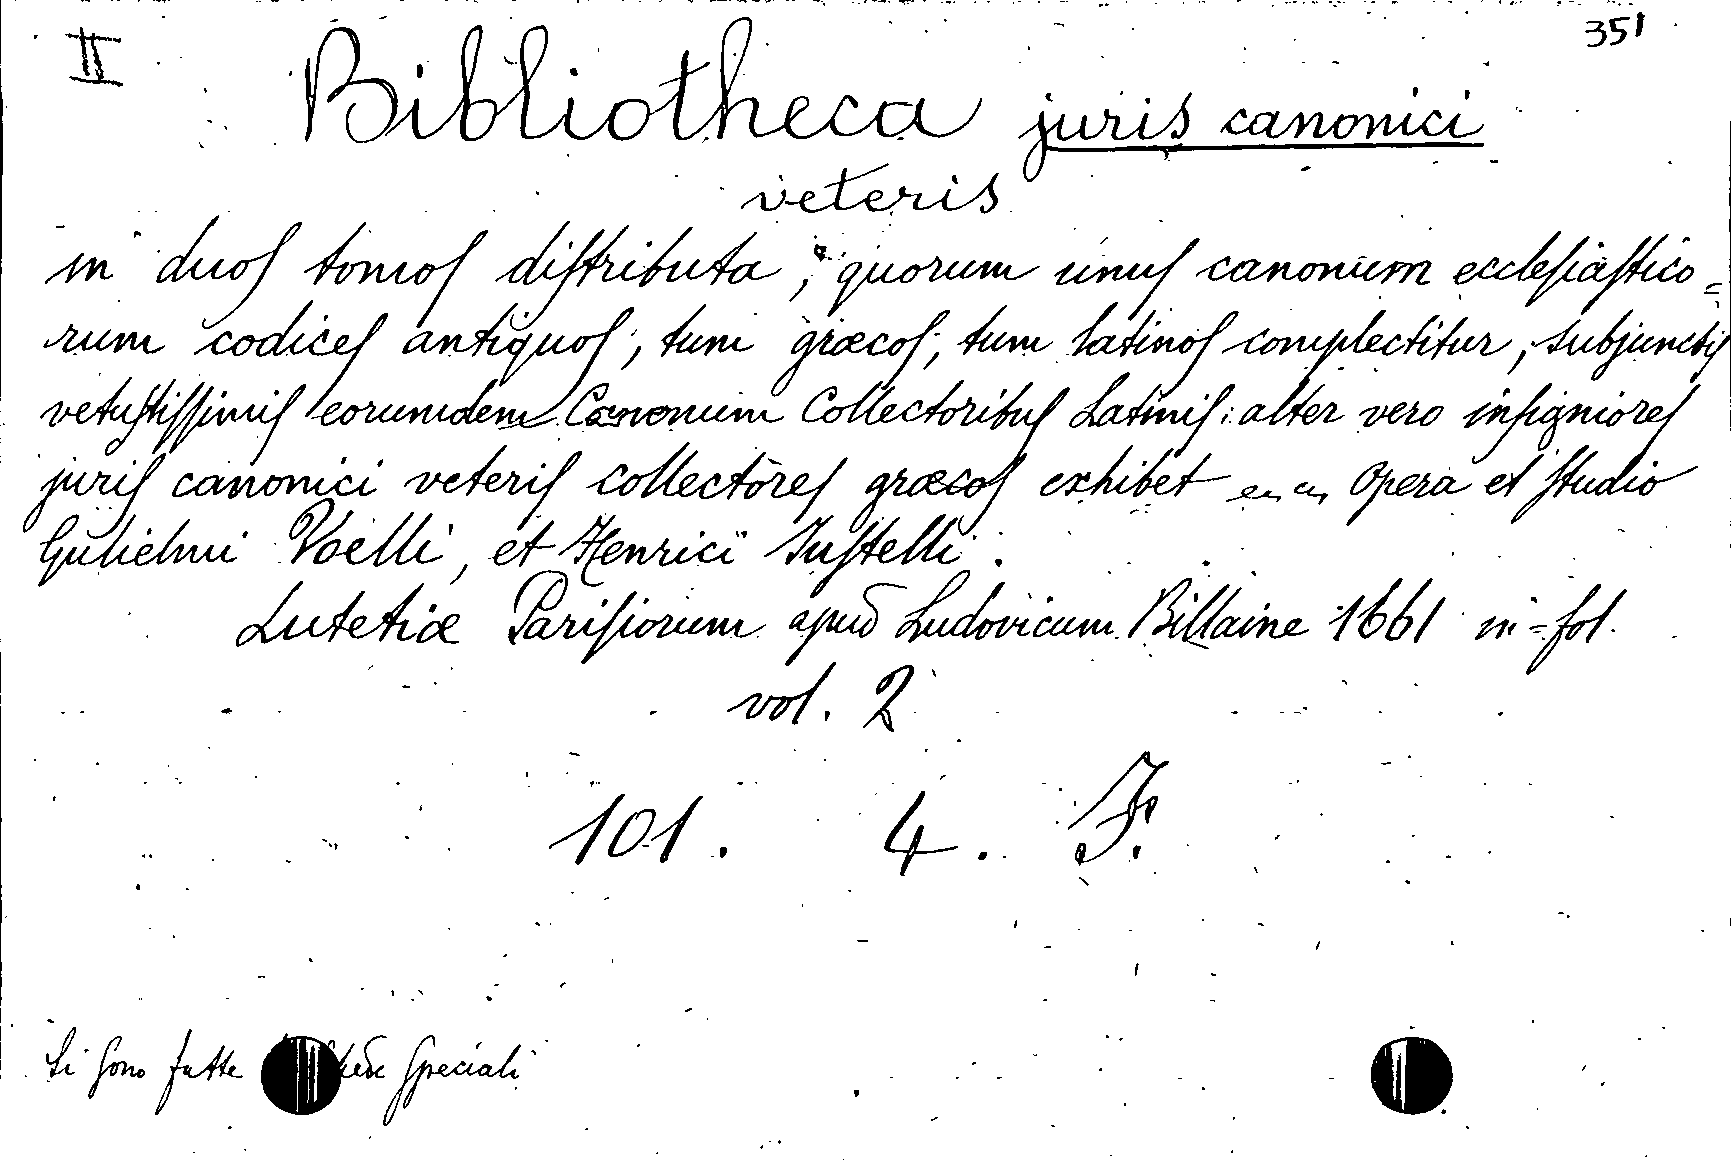 II
351
Bibliotheca juris canonici
veteris
in duoſ tomoſ diſtributa, quorum unuſ canonum eccleſiaſtico=
rum codiceſ antiquoſ, tum græcoſ, tum latinoſ complectitur, subjunctiſ
vetuſtiſſimiſ eorumdem Canonum Collectoribuſ Latiniſ: alter vero inſignioreſ
juriſ canonici veteriſ collectoreſ græcoſ exhibet Opera et ſtudio
Gulielmi Voelli, et Henrici Juſtelli.
Lutetiæ Pariſiorum apud Ludovicum Billaine 1661 in=fol.
vol. 2
101. 4. F.
Si ſono fatte ſpeciali